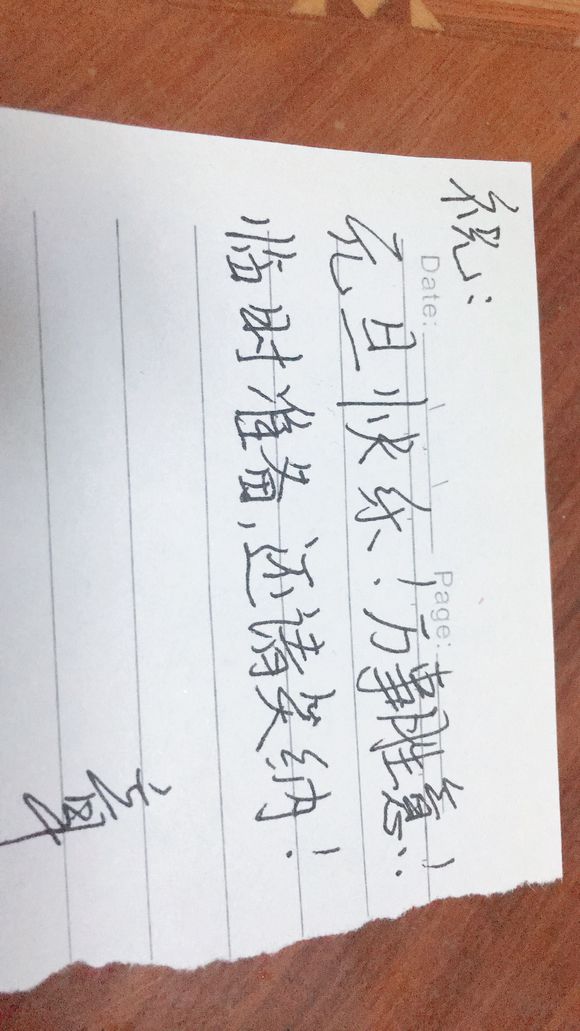 祝：
Date: Page:
元旦快乐！万事胜意！
临时准备，还请笑纳！